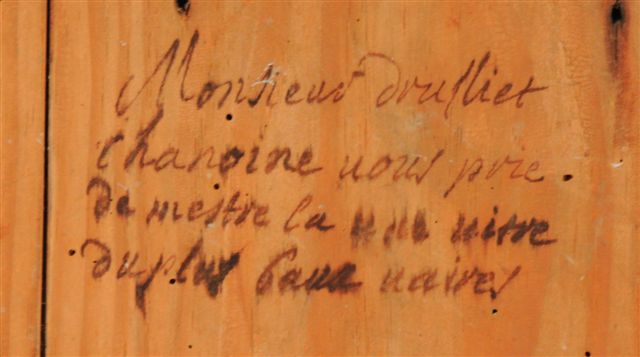 Monsieur drulliet
chanoine vous prie
de mestre la une vitre
du plus baux vaires